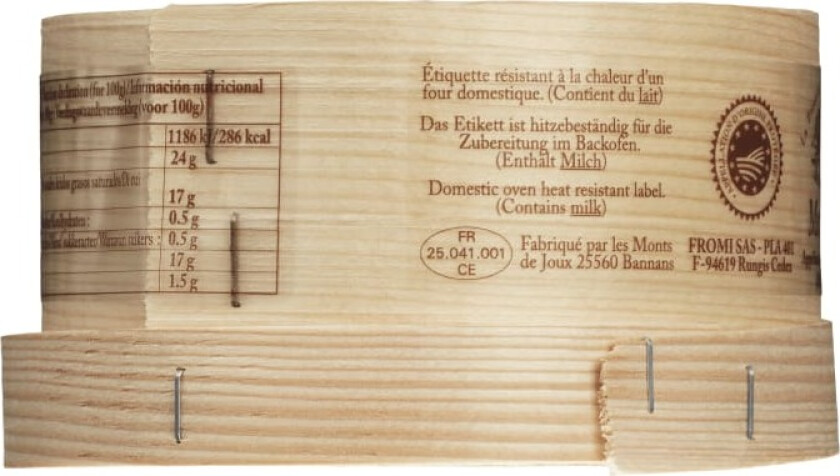 (for 100g)/Información nutricional
(voor 100g)
1186 kJ/286 kcal
24 g
17 g
0.5 g
0.5 g
17 g
1.5 g
Étiquette résistant à la chaleur d'un
four domestique. (Contient du lait)
Das Etikett ist hitzebeständig für die
Zubereitung im Backofen.
(Enthält Milch)
Domestic oven heat resistant label.
(Contains milk)
FR
25.041.001
CE
Fabriqué par les Monts
de Joux 25560 Bannans
APPELLATION D'ORIGINE PROTÉGÉE
FROMI SAS - PLA 401
F-94619 Rungis Cedex